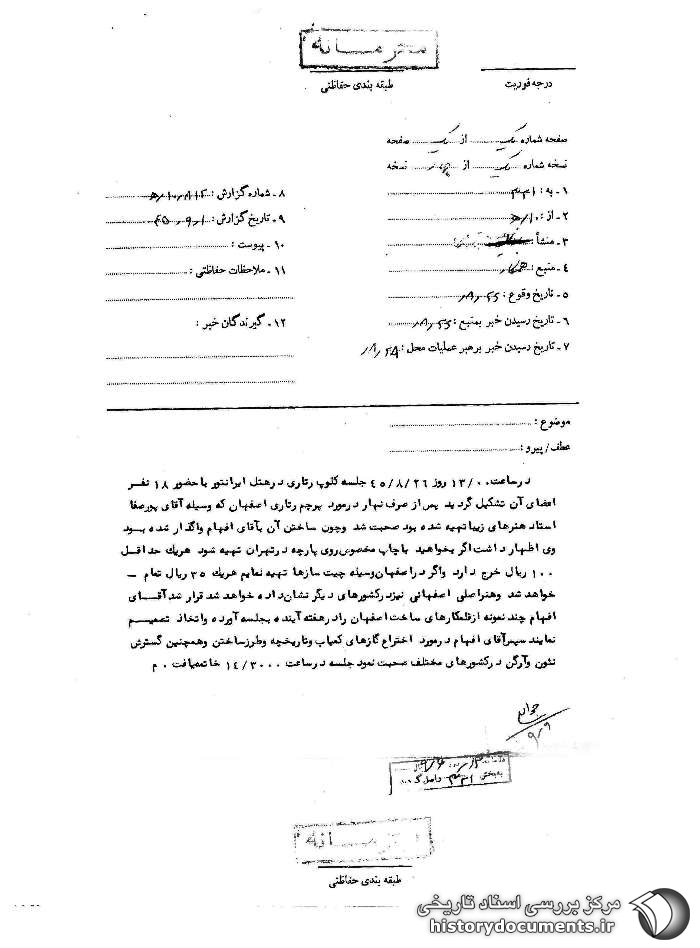 محرمانه
طبقه بندی حفاظتی
درجه فوریت
صفحه شماره یک از یک صفحه
نسخه شماره یک از نسخه
۱ـ به : ۳۳۱
۲ـ از : ۱۰/ه
۳ـ منشأ :
۴ـ منبع : همکار
۵ـ تاریخ وقوع :
۶ـ تاریخ رسیدن خبر بمنبع :
۷ـ تاریخ رسیدن خبر برهبر عملیات محل :
۸ـ شماره گزارش :
۹ـ تاریخ گزارش : ۴۵/۹/۱
۱۰ـ پیوست :
۱۱ـ ملاحظات حفاظتی :
۱۲ـ گیرندگان خبر :
موضوع :
عطف/پیرو :
درساعت ۱۳/۰۰ روز ۴۵/۸/۲۶ جلسه کلوپ رتاری درهتل ایرانتور باحضور ۱۸ نفر
اعضای آن تشکیل گردید پس از صرف نهار درمورد پرچم رتاری اصفهان که وسیله آقای پورصفا
استاد هنرهای زیبا تهیه شده بود صحبت شد وچون ساختن آن بآقای افهام واگذار شده بود
وی اظهار داشت اگر بخواهید باچاپ مخصوص روی پارچه درتهران تهیه شود هریک حداقل
۱۰۰ ریال خرج دارد واگر دراصفهان وسیله چیت سازها تهیه نمایم هریک ۳۵ ریال تمام ـ
خواهد شد وهنر اصلی اصفهانی نیز درکشورهای دیگر نشان داده خواهد شد قرار شد آقای
افهام چند نمونه از قلمکارهای ساخت اصفهان را درهفته آینده بجلسه آورده واتخاذ تصمیم
نمایند سپس آقای افهام درمورد اختراع گازهای کمیاب وتاریخچه وطرز ساختن وهمچنین گسترش
نئون وآرگن درکشورهای مختلف صحبت نمود جلسه درساعت ۱۴/۳۰۰۰ خاتمه یافت . م
۹/۹
بخش ۳۳۱ واصل گردید
محرمانه
طبقه بندی حفاظتی
مرکز بررسی اسناد تاریخی
historydocuments.ir